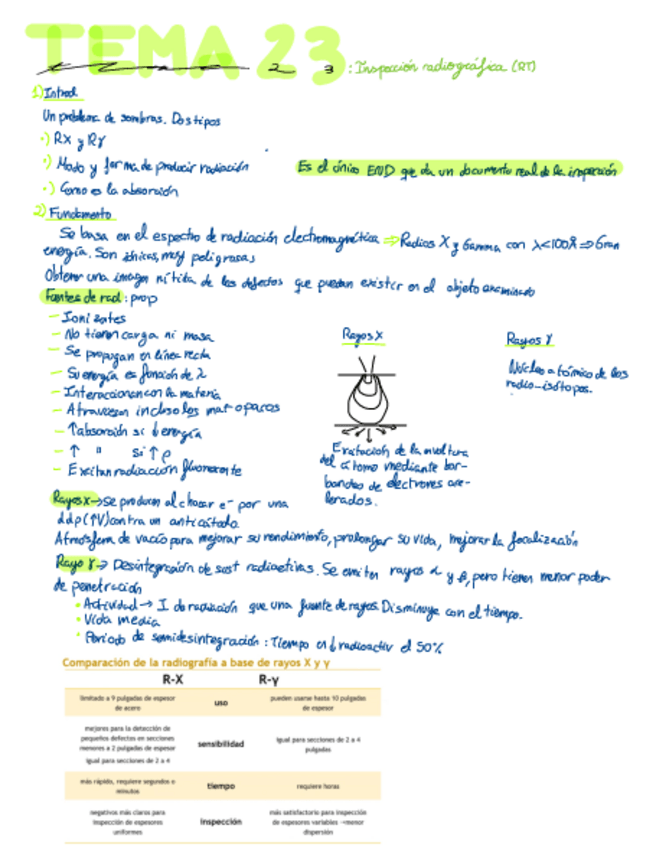 TEMA 23 : Inspección radiográfica (RT)
1) Introd.
Un problema de sombras. Dos tipos
·) RX y Rγ
·) Modo y forma de producir radiación
Es el único END que da un documento real de la inspección
·) Como es la absorción
2) Fundamento
Se basa en el espectro de radiación electromagnética ⇒ Radios X y Gamma con λ<100Å ⇒ Gran
energía. Son iónicas, muy peligrosas
Obtener una imagen nítida de los defectos que puedan existir en el objeto examinado
Fuentes de rad: prop
- Ionizantes
- No tienen carga ni masa
- Se propagan en línea recta
- Su energía es función de λ
- Interaccionan con la materia
- Atraviesan incluso los mat opacos
- ↑absorción si ↓energía
- ↑ " si ↑ρ
- Excitan radiación fluorescente
Rayos X
Excitación de la envoltura
del átomo mediante bom-
bardeo de electrones ace-
lerados.
Rayos γ
Núcleo atómico de los
radio-isótopos.
Rayos X → Se producen al chocar e⁻ por una
ddp (↑V) contra un anticátodo.
Atmósfera de vacío para mejorar su rendimiento, prolongar su vida, mejorar la focalización
Rayo γ → Desintegración de sust radioactivas. Se emiten rayos α y β, pero tienen menor poder
de penetración
• Actividad → I de radiación que una fuente de rayos. Disminuye con el tiempo.
• Vida media
• Periodo de semidesintegración: Tiempo en ↓ radioactiv el 50%
Comparación de la radiografía a base de rayos X y γ
R-X R-γ
limitado a 9 pulgadas de espesor
de acero
uso
pueden usarse hasta 10 pulgadas
de espesor
mejores para la detección de
pequeños defectos en secciones
menores a 2 pulgadas de espesor
igual para secciones de 2 a 4
sensibilidad
igual para secciones de 2 a 4
pulgadas
más rápido, requiere segundos o
minutos
tiempo
requiere horas
negativos más claros para
inspección de espesores
uniformes
inspección
más satisfactorio para inspección
de espesores variables →menor
dispersión